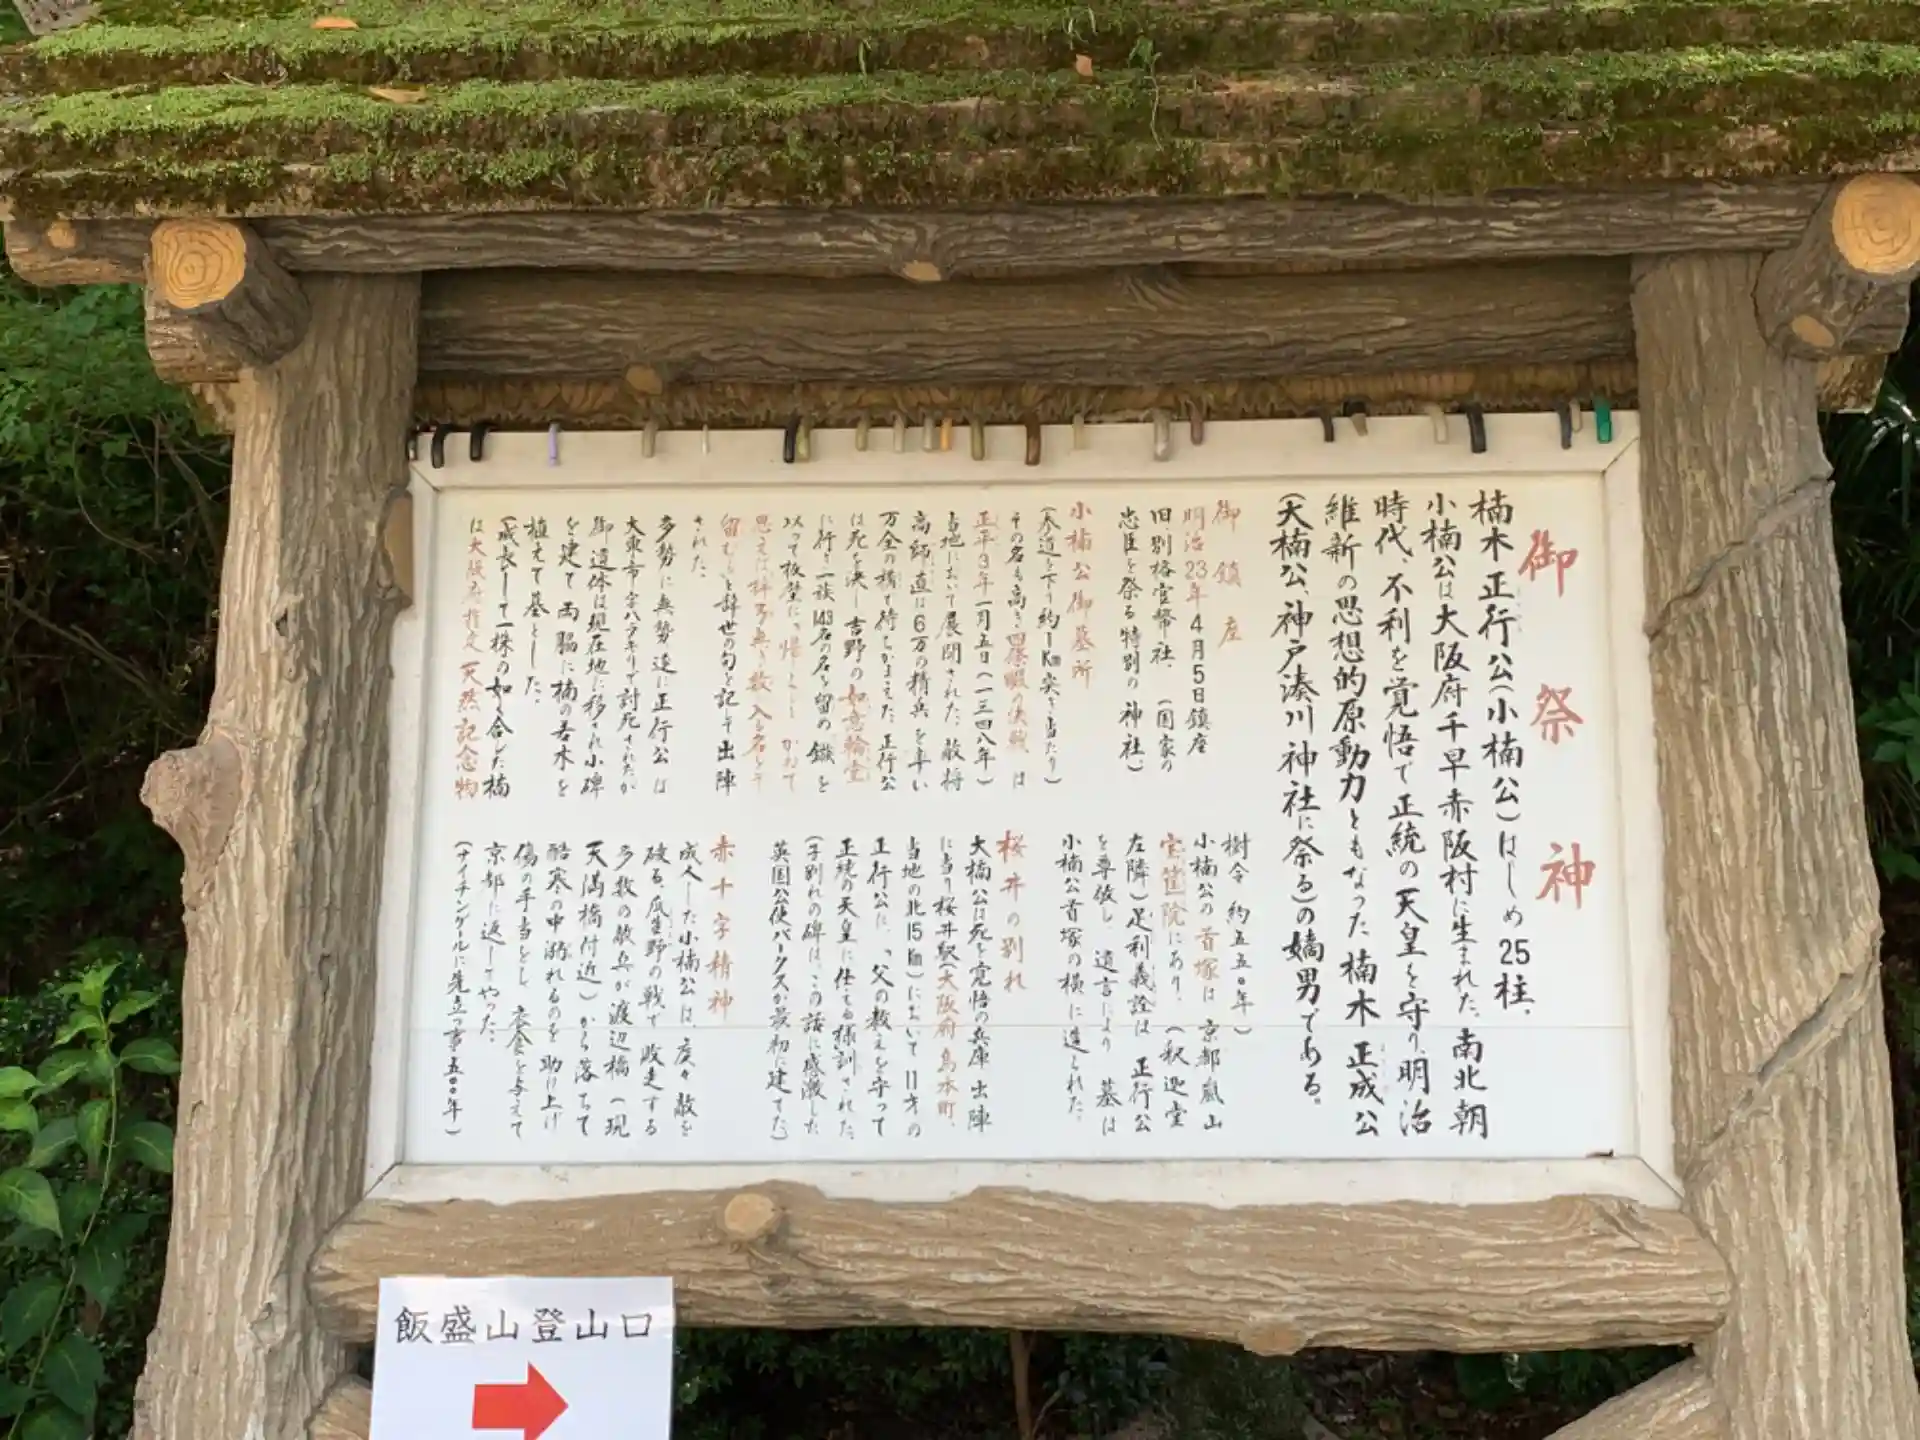 御祭神
楠木正行公(小楠公)はじめ25柱、
小楠公は大阪府千早赤阪村に生まれた、南北朝
時代、不利を覚悟で正統の天皇を守り、明治
維新の思想的原動力ともなった楠木正成公
(大楠公、神戸湊川神社に祭る)の嫡男である。
御鎮座
明治23年4月5日鎮座
旧、別格官幣社、(国家の
忠臣を祭る特別の神社)
小楠公御墓所
(参道を下り約1Km突き当たり)
その名も高き四條畷の決戦は
正平3年一月五日(一三四八年)
当地において展開された、敵将
高師直は6万の精兵を率い
万全の構で待ちかまえた、正行公
は死を決し吉野の如意輪堂
に行き一族143名の名を留の鏃を
以って板壁に、帰らじとかねて
思えば梓弓無き数に入る名をぞ
留むると辞世の句を記して出陣
された、
多勢に無勢遂に正行公は
大東市字ハラキリで討死されたが
御遺体は現在地に移され小碑
を建て両脇に楠の若木を
植えて墓とした、
(成長して一株の如く合した楠
は大阪府指定天然記念物
樹令約五五〇年)
小楠公の首塚は京都嵐山
宝筐院にあり、(釈迦堂
左隣)足利義詮は正行公
を尊敬し、遺言により墓は
小楠公首塚の横に造られた、
桜井の別れ
大楠公は死を覚悟の兵庫出陣
に当り桜井駅(大阪府島本町、
当地の北15Km)において11才の
正行公に、「父の教えを守って
正統の天皇に仕える様訓された、
(子別れの碑は、この話に感激した
英国公使パークスが最初に建てた)
赤十字精神
成人した小楠公は、度々敵を
破る、瓜生野の戦で敗走する
多数の敵兵が渡辺橋(現
天満橋付近)から落ちて
酷寒の中溺れるのを助け上げ
傷の手当をし衣食を与えて
京都に返してやった、
(ナイチンゲールに先立つ事五〇〇年)
飯盛山登山口